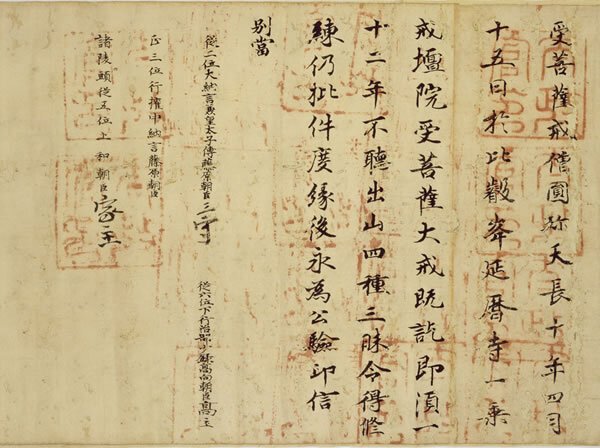 受菩薩戒僧圓珎天長十年四月
十五日於比叡峯延暦寺一乗
戒壇院受菩薩大戒既訖即須一
十二年不聽出山四種三昧令得修
練仍批件度縁後永為公驗印信
別當
從二位大納言兼皇太子傅藤原朝臣三守
從六位下行治部少録高向朝臣高主
正三位行權中納言藤原朝臣
諸陵頭從五位上和朝臣家主